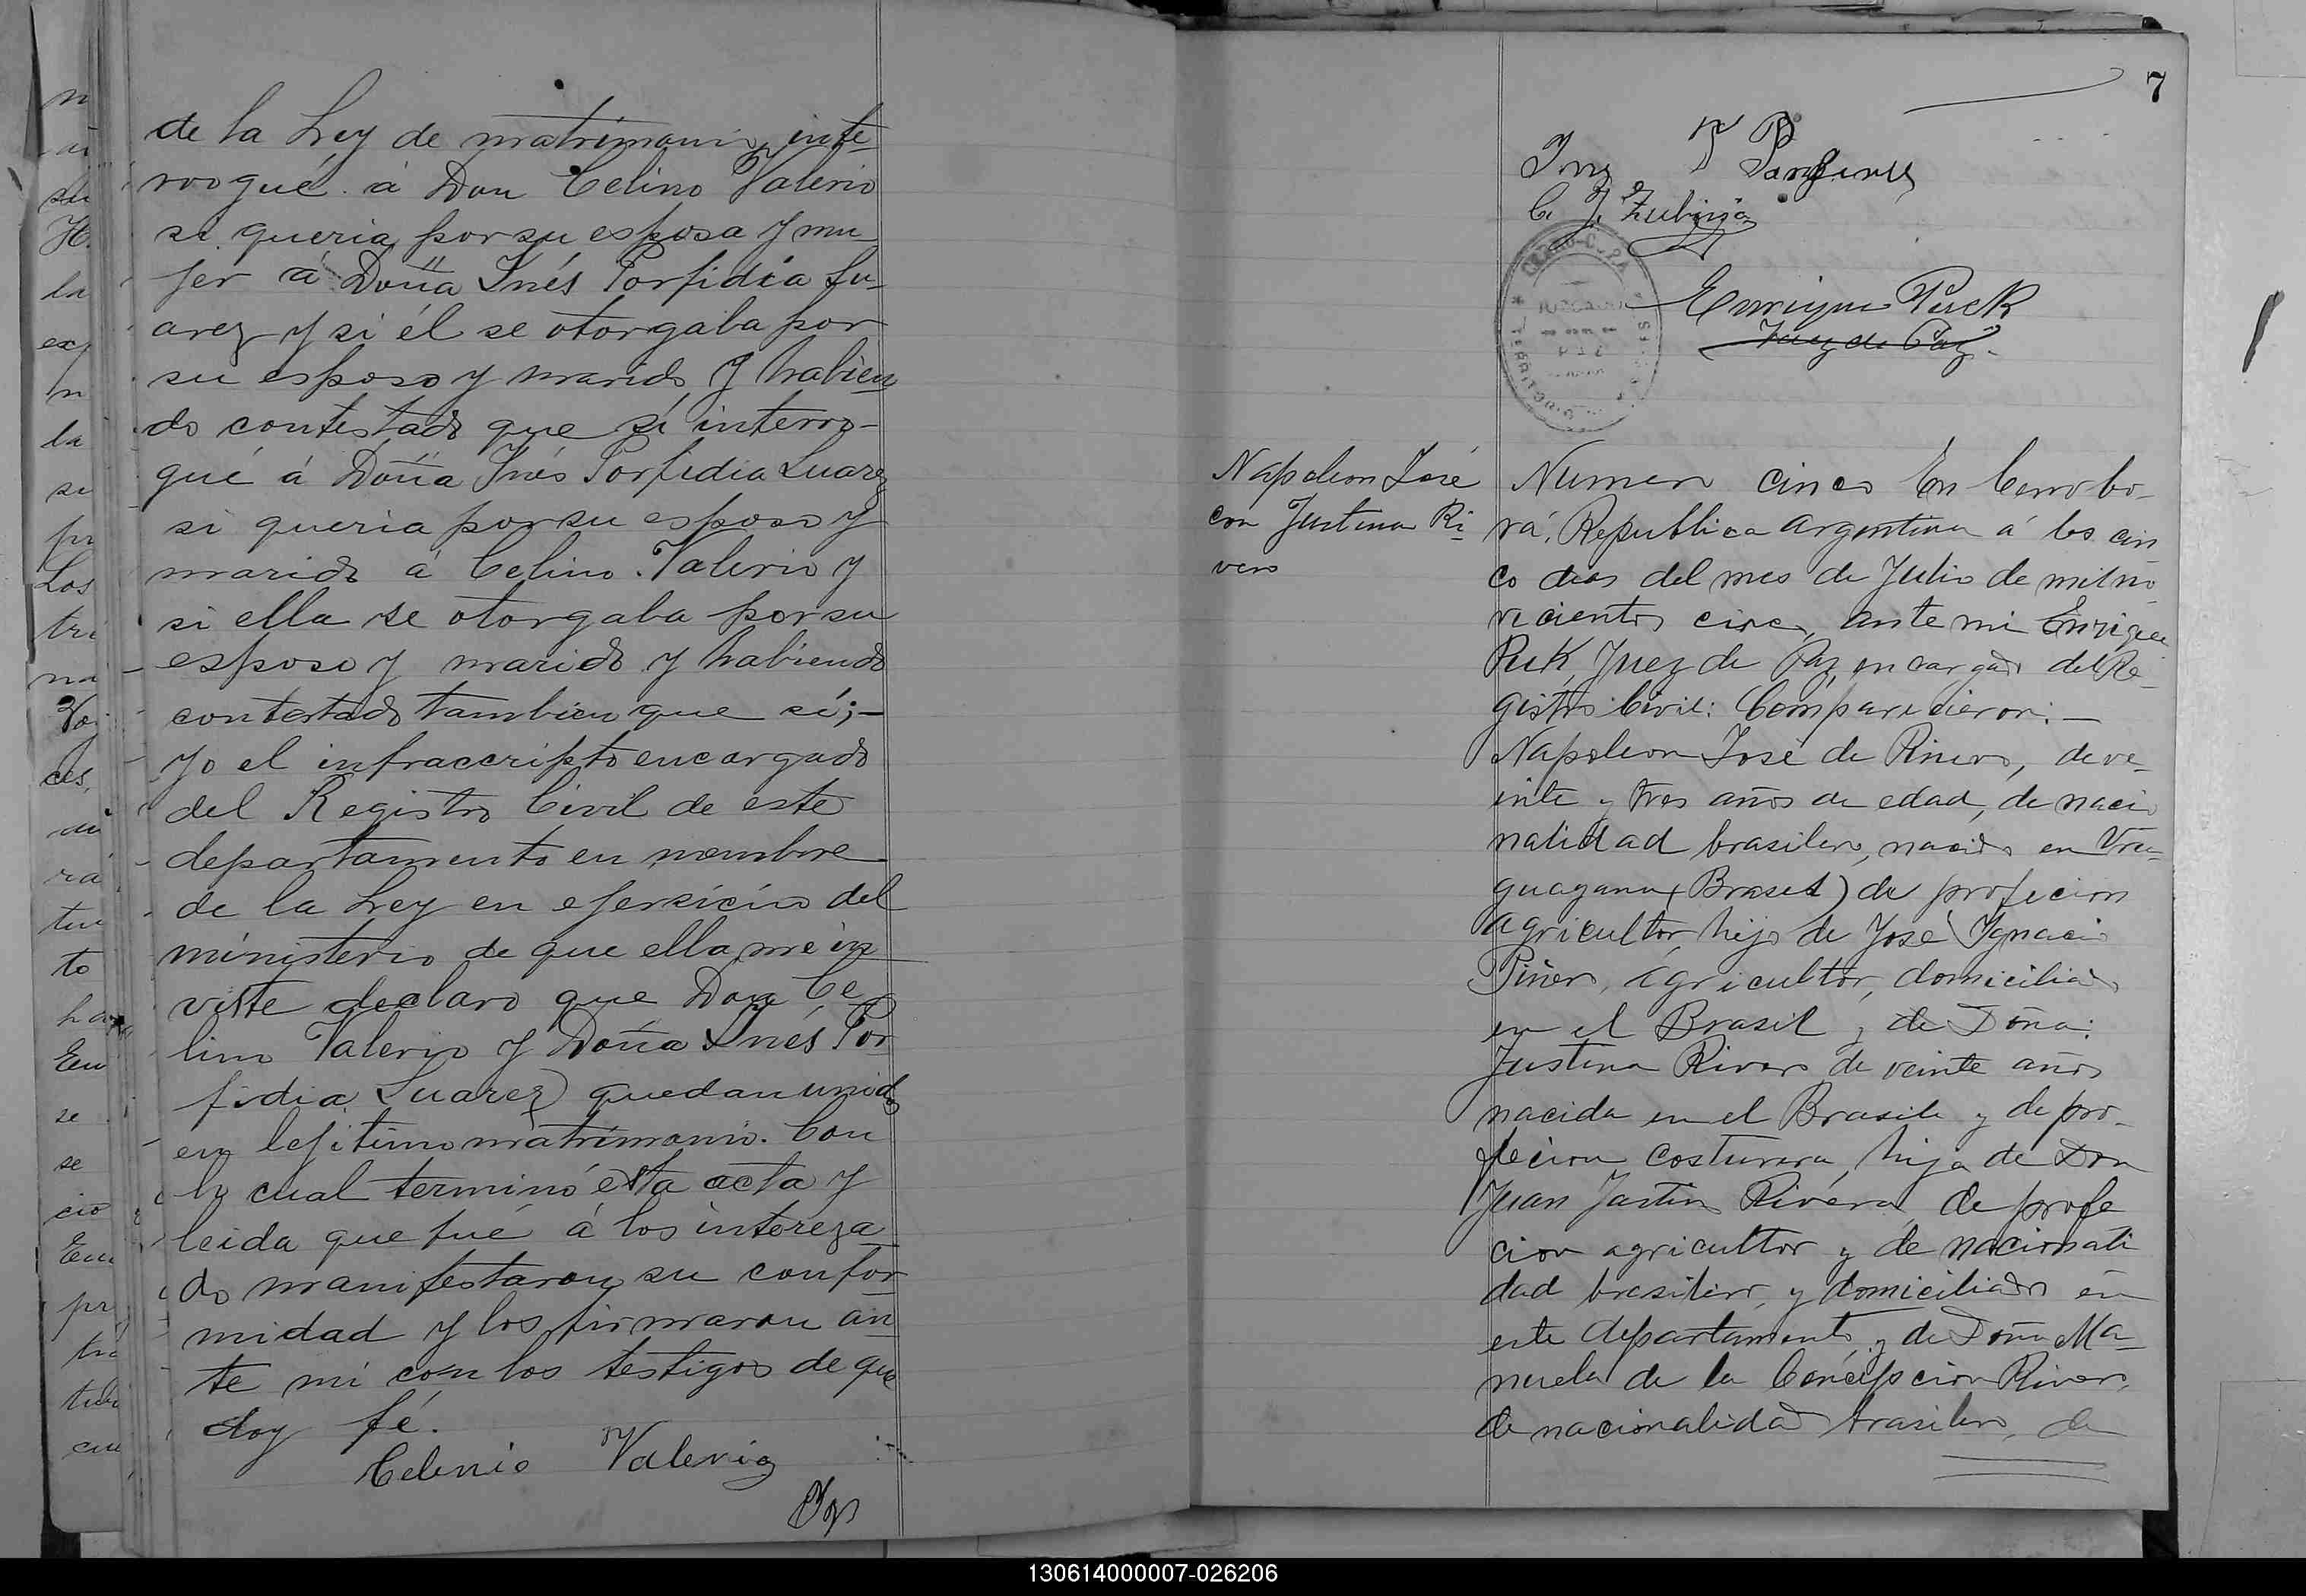 de la Ley de matrimonio, inte-
rrogué á Don Celino Valerio
si queria por su esposa y mu-
jer á Doña Inés Porfidia Su-
arez y si él se otorgaba por
su esposo y marido y habien
do contestado que sí interro-
gué á Doña Inés Porfidia Suarez
si queria por su esposo y
marido á Celino Valerio y
si ella se otorgaba por su
esposo y marido y habiendo
contestado tambien que sí;-
yo el infraccripto encargado
del Registro Civil de este
departamento en nombre
de la Ley en efersicio del
ministerio de que ella me in
viste declaro que Don Ce
lino Valerio y Doña Inés Por-
fidia Suarez quedan unidos
en lejitimo matrimonio. Con
lo cual terminó esta acta y
leida que fué á los intereza
do manifestaron su confor
midad y los firmaron an
te mi con los testigos de que
doy fé.
Celinio Valerio
7
C. J. Zubiria
Enrique Puck
Juez de Paz.
TERRITORIO
Napoleon José
con Justina Ri-
vero
Numero cinco En Cerro Co-
rá, Republica Argentina á los cin
co dias del mes de Julio de mil no
vecientos cinco, ante mi Enrique
Puk, Juez de Paz, encargado del Re-
gistro Civil: Comparecieron:-
Napoleon José de Pinero, de ve-
inte y tres años de edad, de nacio
nalidad brasilero, nacido en Uru-
guayana (Brasil) de profecion
agricultor, hijo de José Ignacio
Piñero, agricultor, domiciliado
en el Brasil y de Doña:
Justina Rivero de veinte años
nacida en el Brasil y de pro-
fecion costurera, hija de Don
Juan Rivera de profe
cion agricultor y de nacionali
dad brasilero, y domiciliado en
este departamento y de Doña Ma-
nuela de la Concepcion Rivero,
de nacionalidad brasilero, de
130614000007-026206